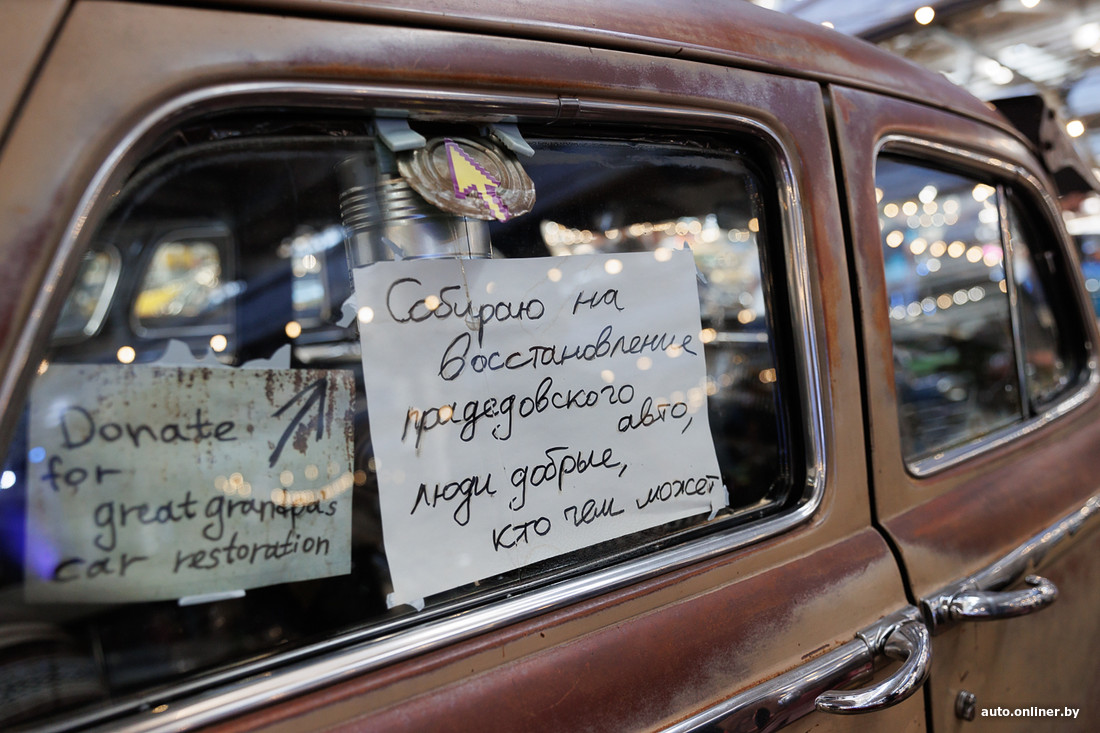 Donate
for
great grandpa's
car restoration
Собираю на
восстановление
прадедовского
авто,
люди добрые,
кто чем может
auto.onliner.by